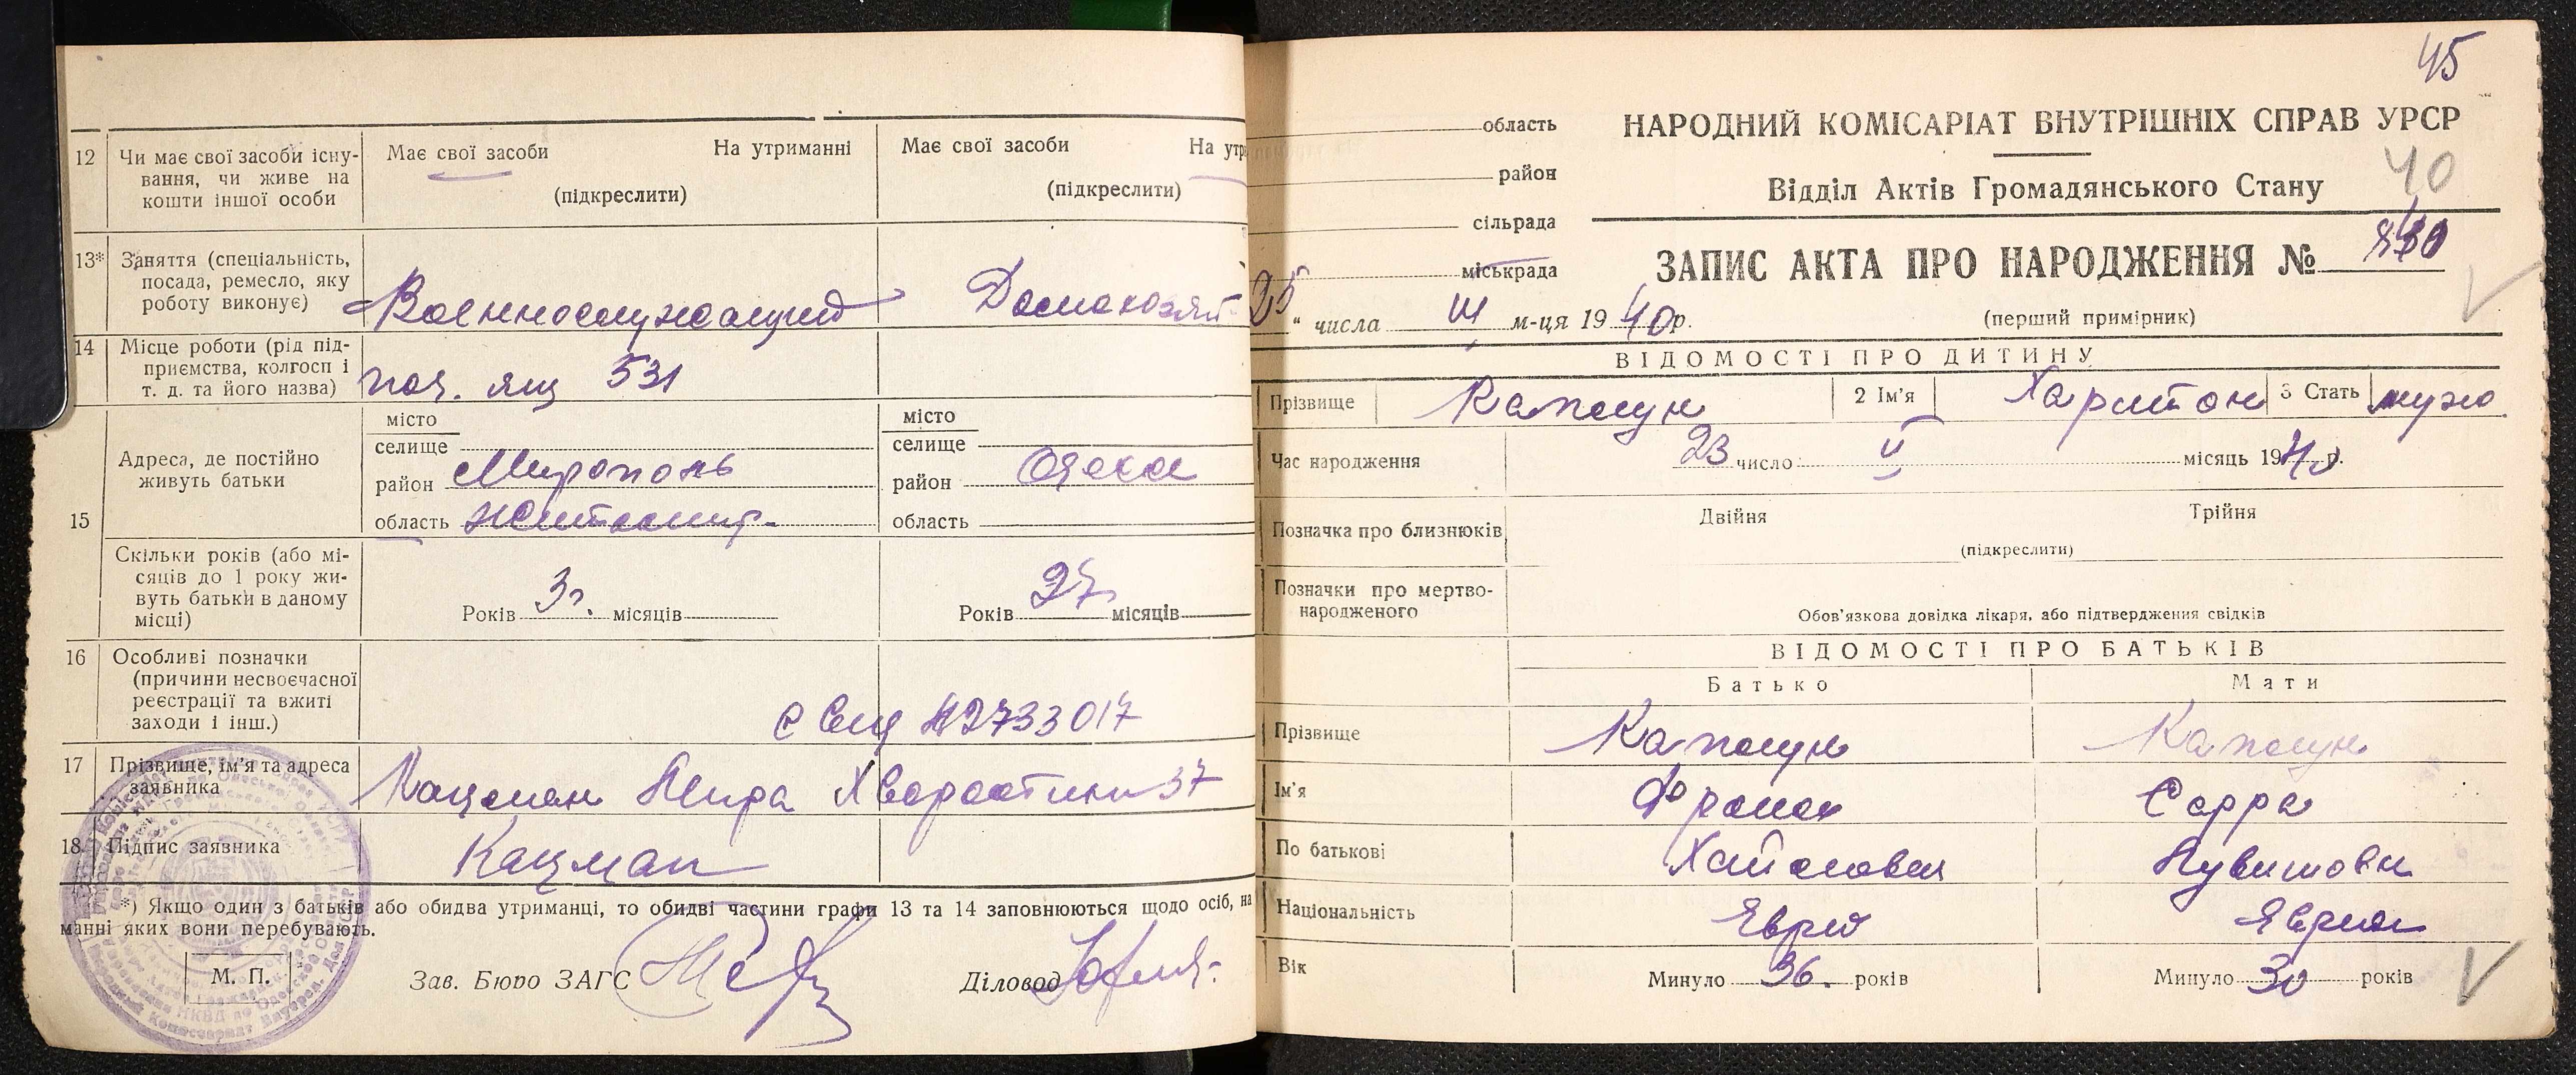 12 Чи має свої засоби існу-
вання, чи живе на
кошти іншої особи
Має свої засоби На утриманні
(підкреслити)
Має свої засоби На утр
(підкреслити)
13* Заняття (спеціальність,
посада, ремесло, яку
роботу виконує)
Военнослужащий
Домохозяй
14 Місце роботи (рід під-
приємства, колгосп і
т. д. та його назва)
поч. ящ 531
15 Адреса, де постійно
живуть батьки
місто
селище
район Мирополь
область Житомир.
місто
селище
район Одесса
область
Скільки років (або мі-
сяців до 1 року жи-
вуть батьки в даному
місці)
Років 3 г. місяців
Років 27 місяців
16 Особливі позначки
(причини несвоєчасної
реєстрації та вжиті
заходи і інш.)
2733017
17 Прізвище, ім'я та адреса
заявника
Кацман 37
18 Підпис заявника
Кацман
*) Якщо один з батьків або обидва утриманці, то обидві частини графи 13 та 14 заповнюються щодо осіб, на
манні яких вони перебувають.
М. П.
Зав. Бюро ЗАГС
Діловод
45
область
район
сільрада
міськрада
25 " числа III м-ця 1940 р.
НАРОДНИЙ КОМІСАРІАТ ВНУТРІШНІХ СПРАВ УРСР
40
Відділ Актів Громадянського Стану
ЗАПИС АКТА ПРО НАРОДЖЕННЯ №
(перший примірник)
ВІДОМОСТІ ПРО ДИТИНУ
Прізвище Капцун 2 Ім'я Харитон 3 Стать муж
Час народження 23 число II місяць 1940 р.
Позначка про близнюків
Двійня Трійня
(підкреслити)
Позначки про мертво-
народженого
Обов'язкова довідка лікаря, або підтвердження свідків
ВІДОМОСТІ ПРО БАТЬКІВ
Батько Мати
Прізвище Капцун Капцун
Ім'я Фроим Сарра
По батькові Хаимович
Національність Еврей Еврей
Вік Минуло 36 років Минуло 30 років